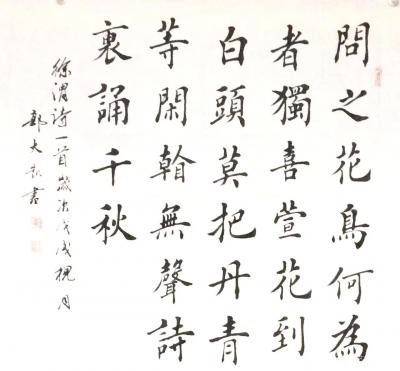 問之花鳥何為
者獨喜萱花到
白頭莫把丹青
等閑翰無聲詩
裏誦千秋
徐渭詩一首歲次戊戌槐月
郭大書